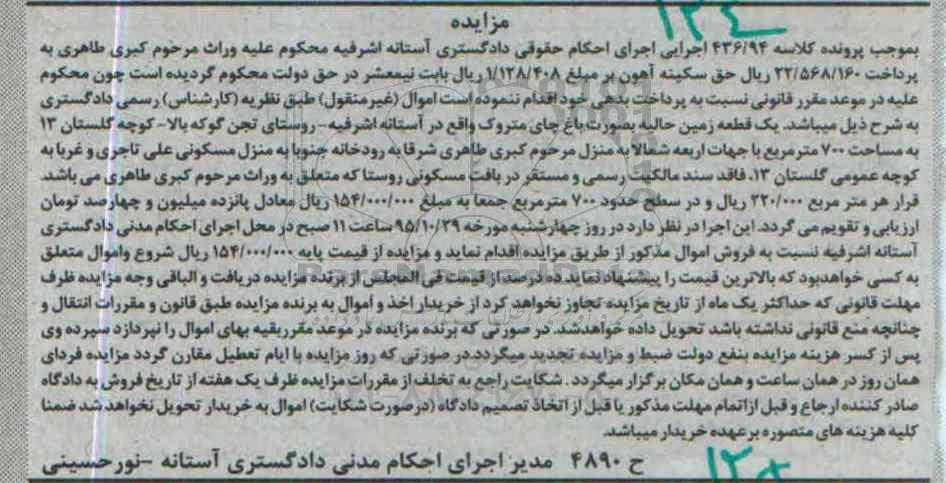 مزایده
بموجب پرونده کلاسه ۴۳۶/۹۴ اجرایی اجرای احکام حقوقی دادگستری آستانه اشرفیه محکوم علیه وراث مرحوم کبری طاهری به
پرداخت ۲۲/۵۶۸/۱۶۰ ریال حق سکینه آهون بر مبلغ ۱/۱۲۸/۴۰۸ ریال بابت نیمعشر در حق دولت محکوم گردیده است چون محکوم
علیه در موعد مقرر قانونی نسبت به پرداخت بدهی خود اقدام ننموده است اموال (غیرمنقول) طبق نظریه (کارشناس) رسمی دادگستری
به شرح ذیل میباشد. یک قطعه زمین حالیه بصورت باغ چای متروک واقع در آستانه اشرفیه- روستای تجن گوکه بالا- کوچه گلستان ۱۳
به مساحت ۷۰۰ مترمربع با جهات اربعه شمالا به منزل مرحوم کبری طاهری شرقا به رودخانه جنوبا به منزل مسکونی علی تاجری و غربا به
کوچه عمومی گلستان ۱۳. فاقد سند مالکیت رسمی و مستقر در بافت مسکونی روستا که متعلق به وراث مرحوم کبری طاهری می باشد.
قرار هر متر مربع ۲۲۰/۰۰۰ ریال و در سطح حدود ۷۰۰ مترمربع جمعا به مبلغ ۱۵۴/۰۰۰/۰۰۰ ریال معادل پانزده میلیون و چهارصد تومان
ارزیابی و تقویم می گردد. این اجرا در نظر دارد در روز چهارشنبه مورخه ۹۵/۱۰/۲۹ ساعت ۱۱ صبح در محل اجرای احکام مدنی دادگستری
آستانه اشرفیه نسبت به فروش اموال مذکور از طریق مزایده اقدام نماید و مزایده از قیمت پایه ۱۵۴/۰۰۰/۰۰۰ ریال شروع واموال متعلق
به کسی خواهدبود که بالاترین قیمت را پیشنهاد نماید ده درصد از قیمت فی المجلس از برنده مزایده دریافت و الباقی وجه مزایده ظرف
مهلت قانونی که حداکثر یک ماه از تاریخ مزایده تجاوز نخواهد کرد از خریدار اخذ و اموال به برنده مزایده طبق قانون و مقررات انتقال و
چنانچه منع قانونی نداشته باشد تحویل داده خواهدشد. در صورتی که برنده مزایده در موعد مقرربقیه بهای اموال را نپردازد سپرده وی
پس از کسر هزینه مزایده بنفع دولت ضبط و مزایده تجدید میگردد.در صورتی که روز مزایده با ایام تعطیل مقارن گردد مزایده فردای
همان روز در همان ساعت و همان مکان برگزار میگردد. شکایت راجع به تخلف از مقررات مزایده ظرف یک هفته از تاریخ فروش به دادگاه
صادر کننده ارجاع و قبل ازاتمام مهلت مذکور یا قبل از اتخاذ تصمیم دادگاه (درصورت شکایت) اموال به خریدار تحویل نخواهد شد ضمنا
کلیه هزینه های متصوره برعهده خریدار میباشد.
ح ۴۸۹۰ مدیر اجرای احکام مدنی دادگستری آستانه -نورحسینی